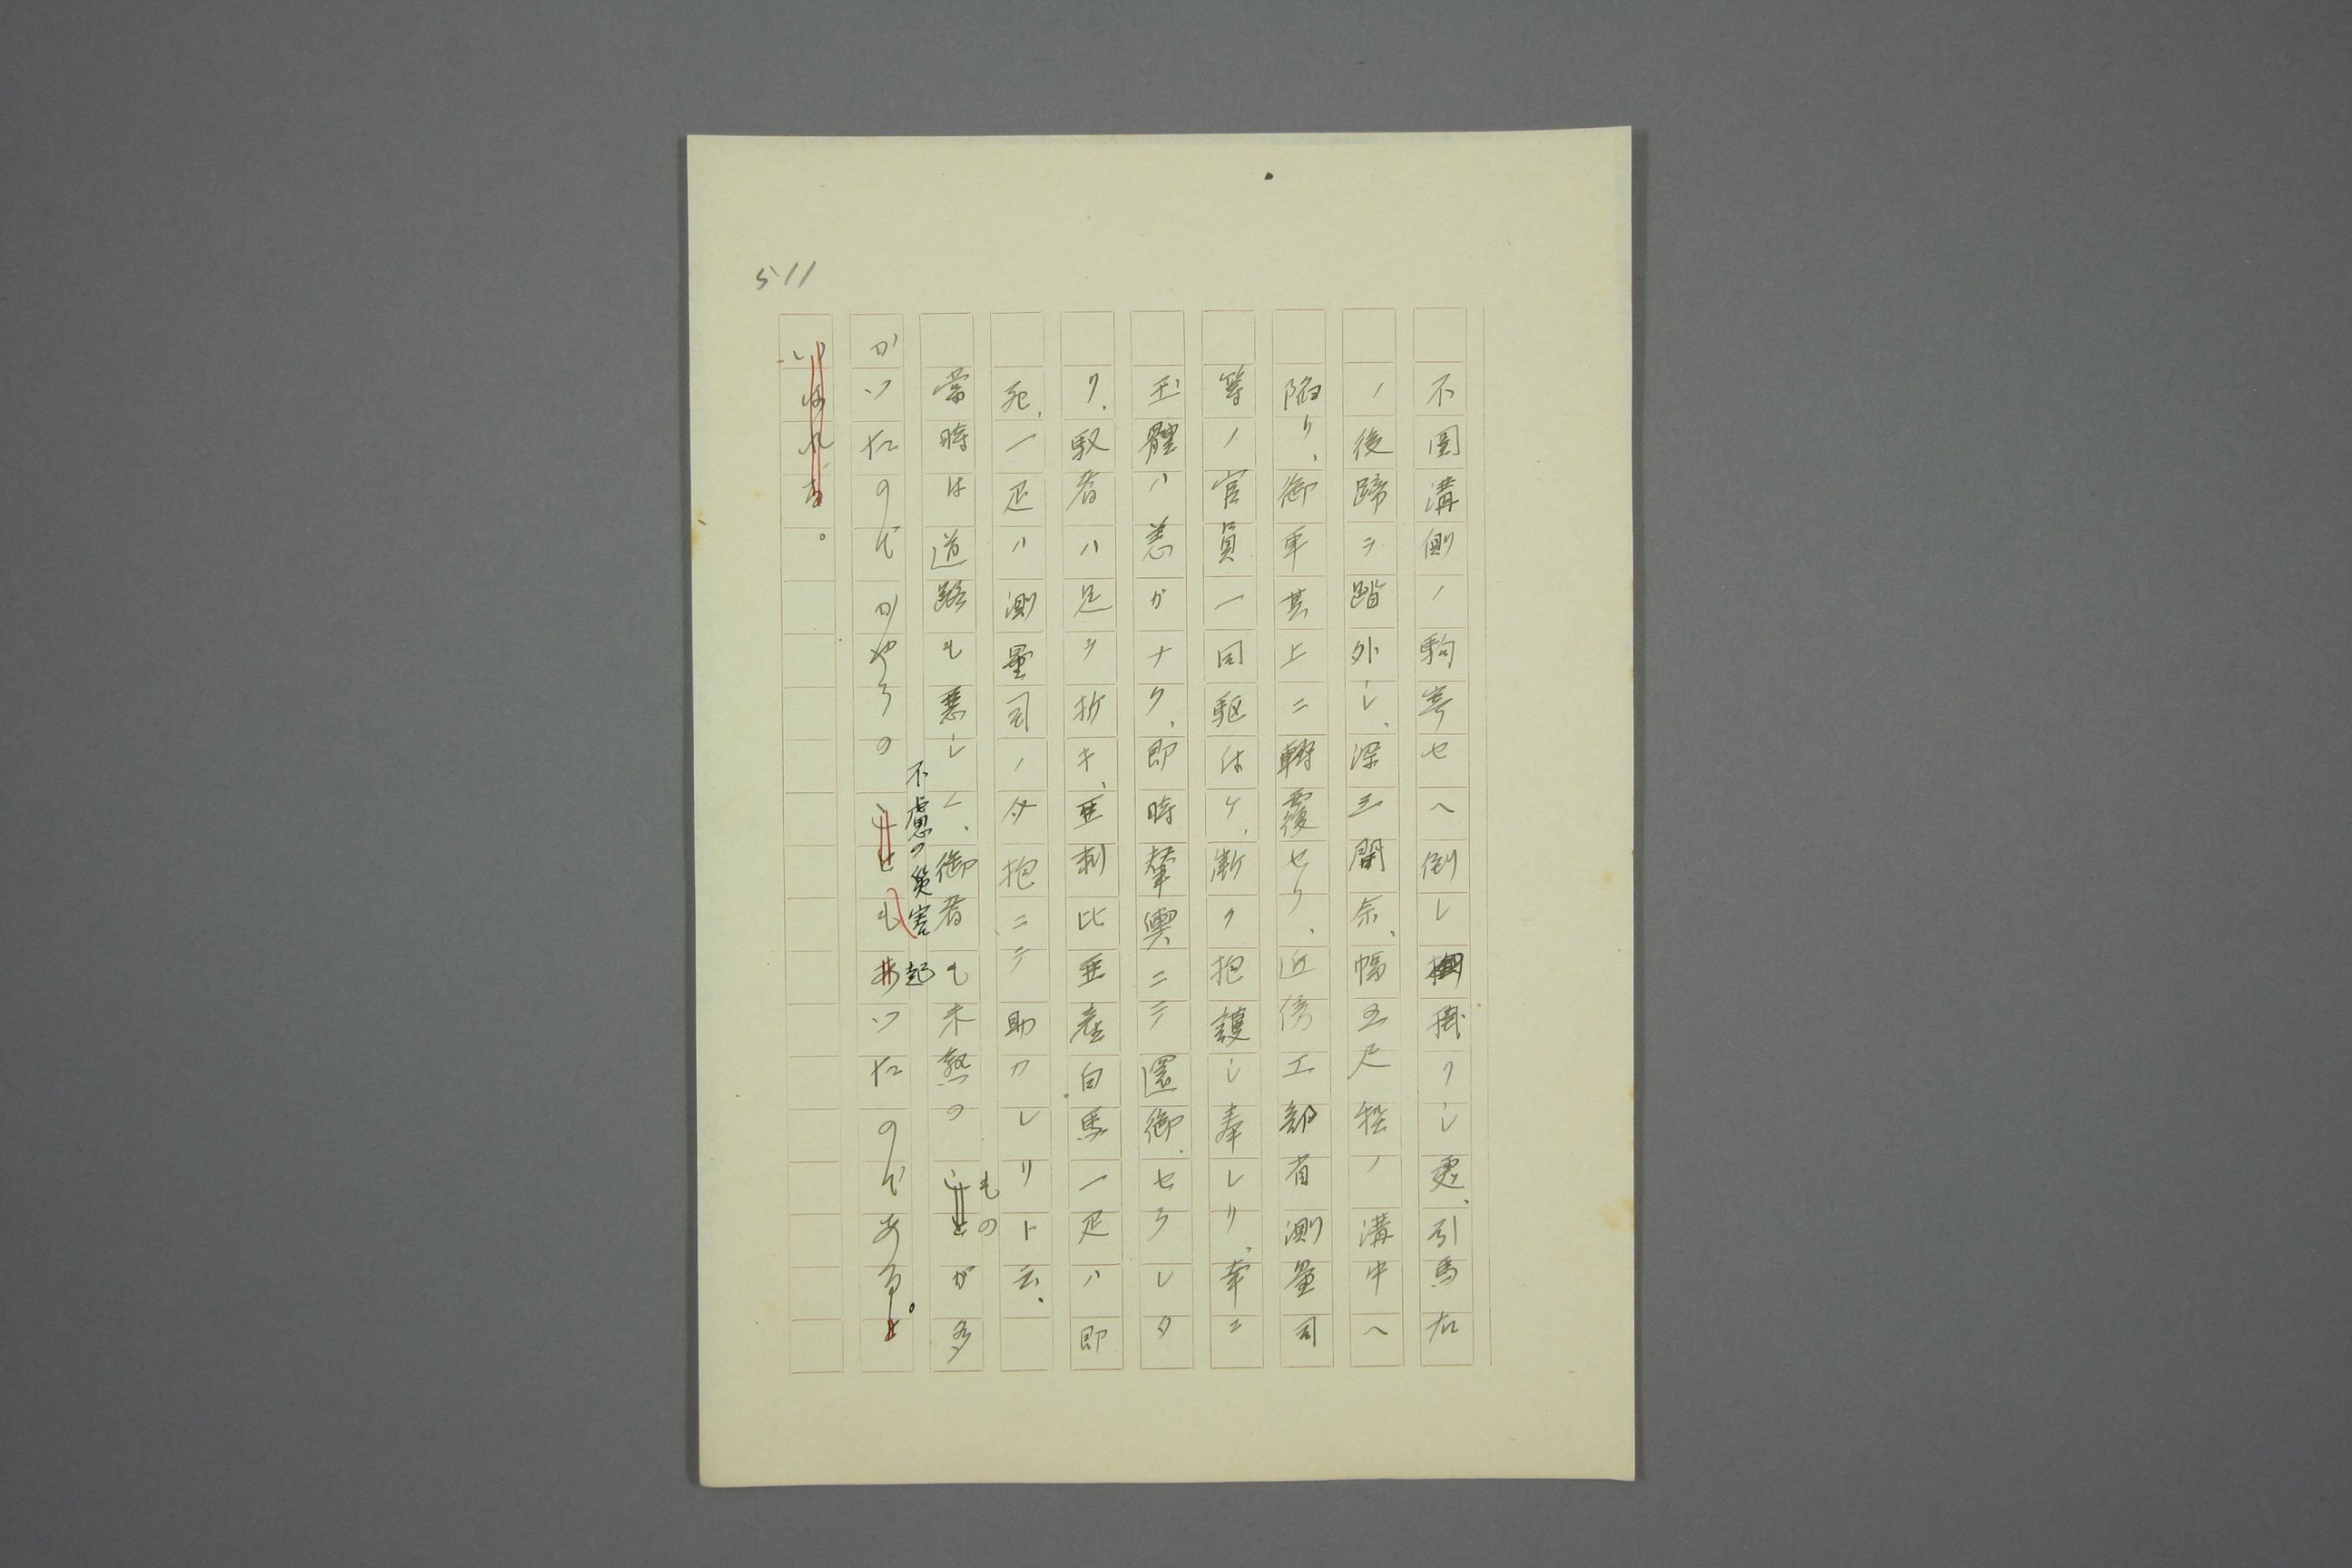 511
不圖溝側ノ駒寄セヘ倒レ掛リシ処、引馬右
ノ後蹄ヲ踏外シ、深三間余、幅五尺程ノ溝中ヘ
陥リ、御車其上ニ轉覆セリ、近傍工部省測量司
等ノ官員一同駆け付ケ、漸ク抱護シ奉レリ、幸ニ
玉體ハ恙ガナク、即時輦輿ニテ還御セラレタ
リ、馭者ハ足ヲ折キ、亜刺比亜産白馬一疋ハ即
死、一疋ハ測量司ノ介抱ニテ助カレリト云、
當時は道路も悪しく、御者も未熟のものが多
かつたのでかやうの不慮の災害も起つたのである。